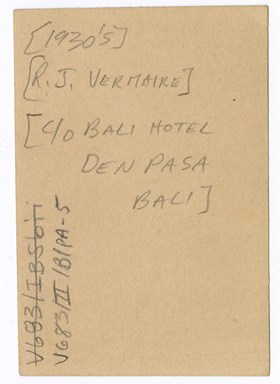 [1930'S]
[R. J. VERMAIRE]
[C/O BALI HOTEL
DEN PASA
BALI]
V683/II/B/PA-5